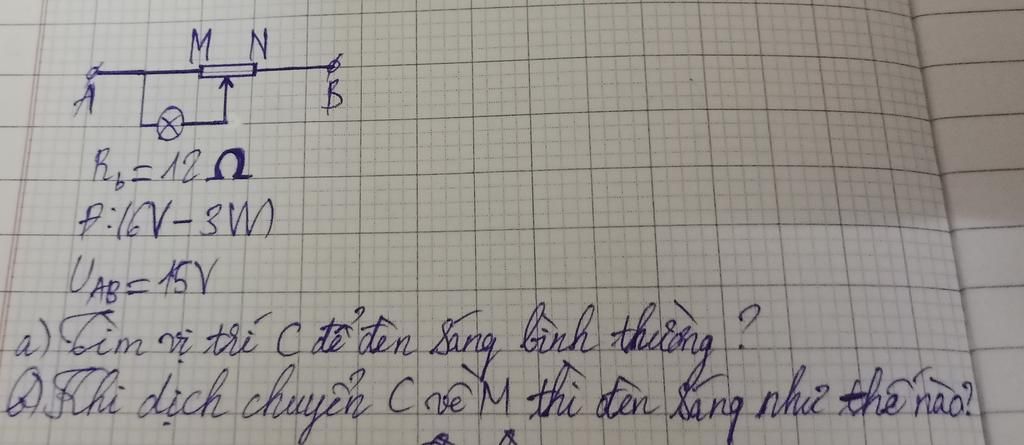 M N
A B
R_b = 12 Ω
Đ: (6V - 3W)
U_AB = 15V
a) Tìm vị trí C để đèn sáng bình thường?
b) Khi dịch chuyển C về M thì đèn sáng như thế nào?